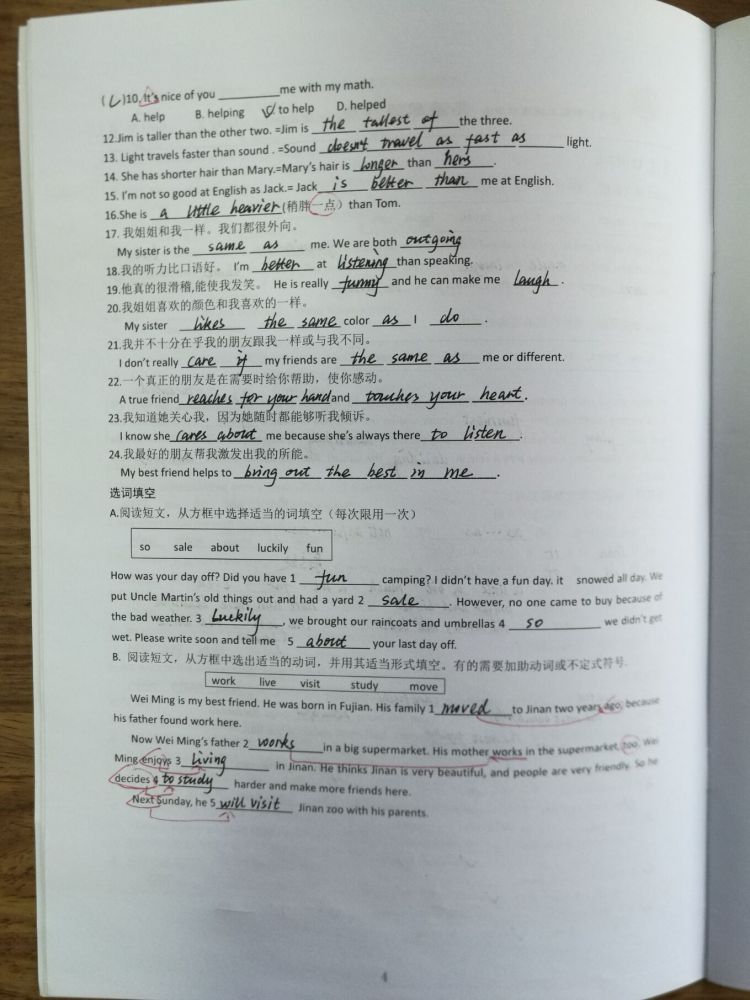 (C)10. It's nice of you ________ me with my math.
A. help B. helping C. to help D. helped
12.Jim is taller than the other two. =Jim is the tallest of the three.
13. Light travels faster than sound . =Sound doesn't travel as fast as light.
14. She has shorter hair than Mary.=Mary's hair is longer than hers.
15. I'm not so good at English as Jack.= Jack is better than me at English.
16.She is a little heavier (稍胖一点) than Tom.
17. 我姐姐和我一样。我们都很外向。
My sister is the same as me. We are both outgoing
18.我的听力比口语好。 I'm better at listening than speaking.
19.他真的很滑稽,能使我发笑。 He is really funny and he can make me laugh .
20.我姐姐喜欢的颜色和我喜欢的一样。
My sister likes the same color as I do .
21.我并不十分在乎我的朋友跟我一样或与我不同。
I don't really care if my friends are the same as me or different.
22.一个真正的朋友是在需要时给你帮助，使你感动。
A true friend reaches for your hand and touches your heart.
23.我知道她关心我，因为她随时都能够听我倾诉。
I know she cares about me because she's always there to listen .
24.我最好的朋友帮我激发出我的所能。
My best friend helps to bring out the best in me .
选词填空
A.阅读短文，从方框中选择适当的词填空（每次限用一次）
so sale about luckily fun
How was your day off? Did you have 1 fun camping? I didn't have a fun day. it snowed all day. We
put Uncle Martin's old things out and had a yard 2 sale . However, no one came to buy because of
the bad weather. 3 Luckily , we brought our raincoats and umbrellas 4 so we didn't get
wet. Please write soon and tell me 5 about your last day off.
B. 阅读短文，从方框中选出适当的动词，并用其适当形式填空。有的需要加助动词或不定式符号.
work live visit study move
Wei Ming is my best friend. He was born in Fujian. His family 1 moved to Jinan two years ago, because
his father found work here.
Now Wei Ming's father 2 works in a big supermarket. His mother works in the supermarket, too. Wei
Ming enjoys 3 living in Jinan. He thinks Jinan is very beautiful, and people are very friendly. So he
decides 4 to study harder and make more friends here.
Next Sunday, he 5 will visit Jinan zoo with his parents.
4